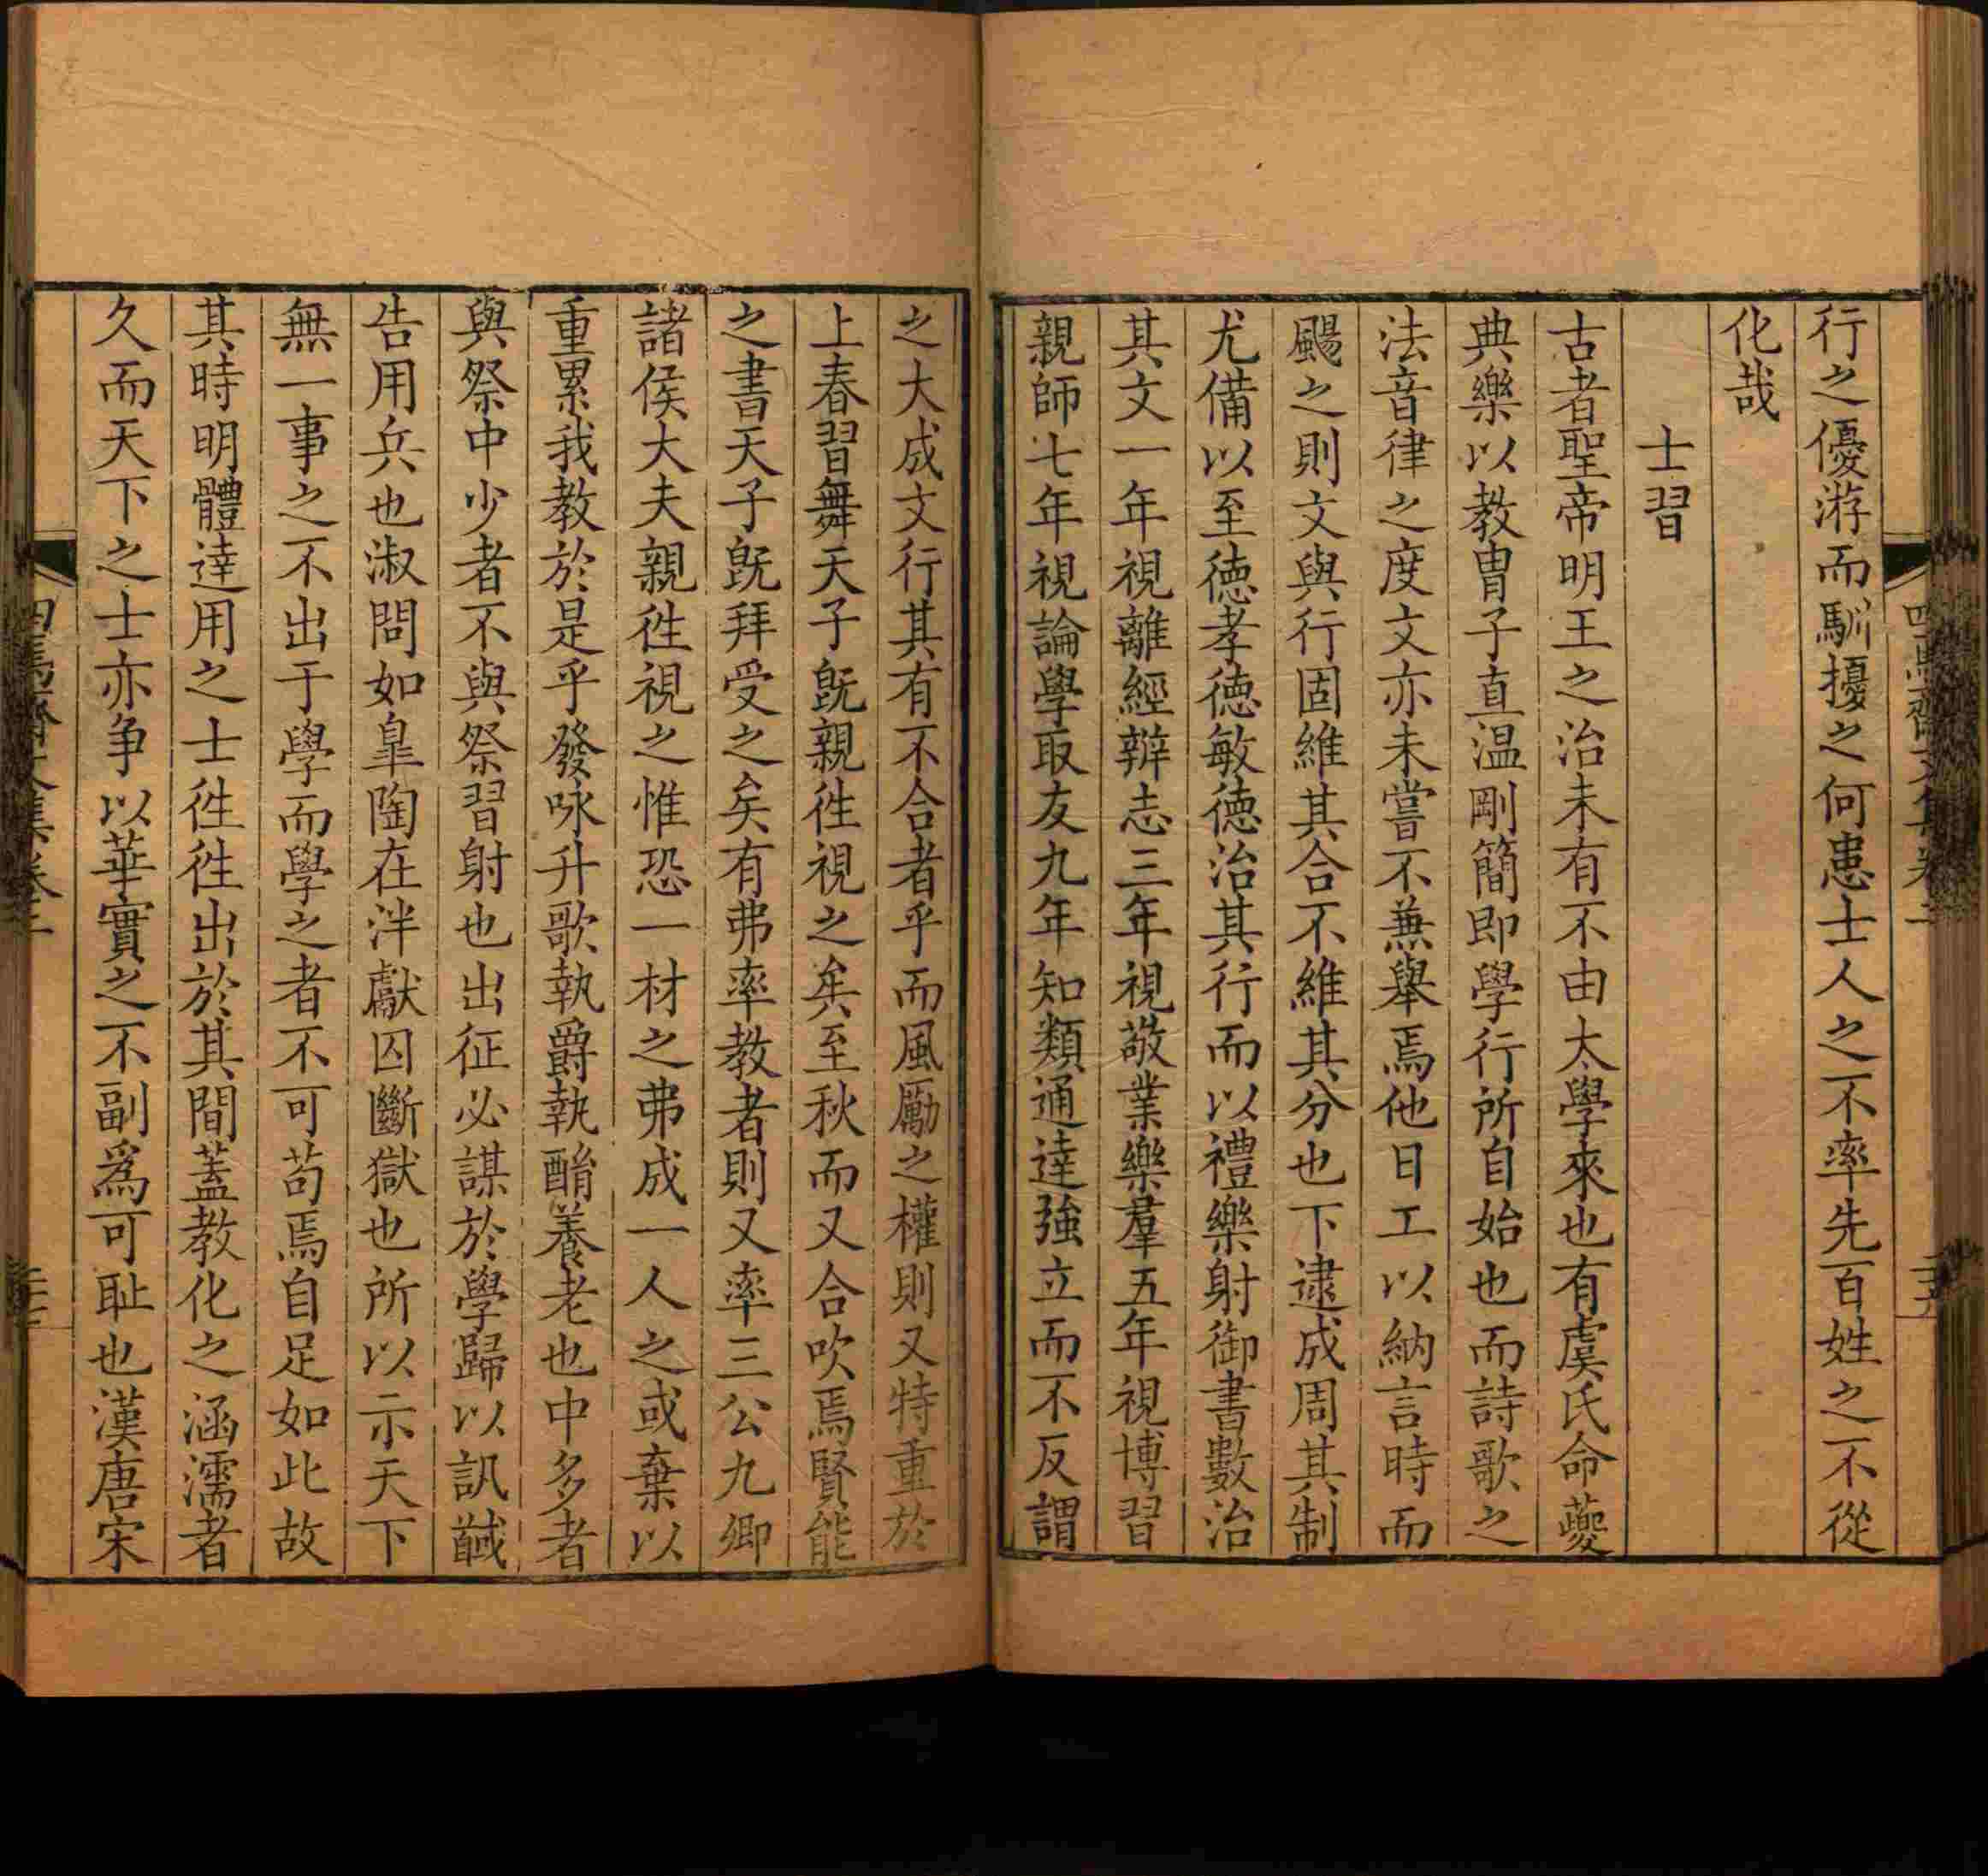 行之優游而馴擾之何患士人之不率先百姓之不從
化哉
士習
古者聖帝明王之治未有不由太學來也有虞氏命夔
典樂以教胄子直温剛簡即學行所自始也而詩歌之
法音律之度文亦未嘗不兼舉焉他日工以納言時而
颺之則文與行固維其合不維其分也下逮成周其制
尤備以至德孝德敏德治其行而以禮樂射御書數治
其文一年視離經辨志三年視敬業樂羣五年視博習
親師七年視論學取友九年知類通達強立而不反謂
之大成文行其有不合者乎而風勵之權則又特重於
上春習舞天子旣親徃視之矣至秋而又合吹焉賢能
之書天子旣拜受之矣有弗率教者則又率三公九卿
諸侯大夫親徃視之惟恐一材之弗成一人之或棄以
重累我教於是乎發咏升歌執爵執酳養老也中多者
與祭中少者不與祭習射也出征必謀於學歸以訊馘
告用兵也淑問如臯陶在泮獻囚斷獄也所以示天下
無一事之不出于學而學之者不可苟焉自足如此故
其時明體達用之士徃徃出於其間蓋教化之涵濡者
久而天下之士亦争以華實之不副爲可耻也漢唐宋